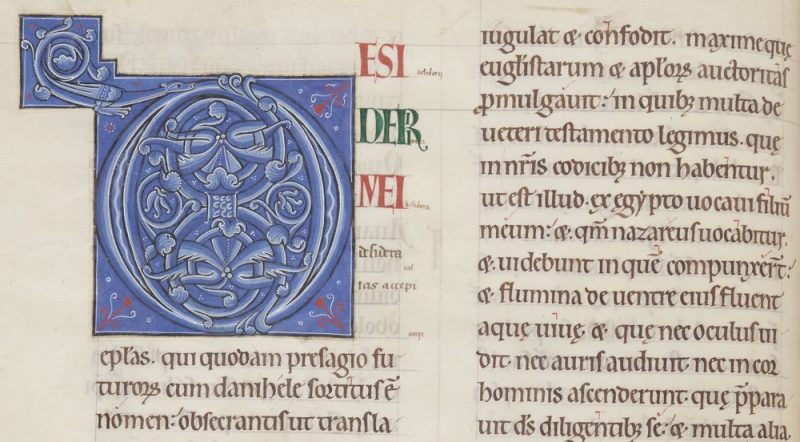 D
ESI
DERII
MEI
desidera
tas accepi
eplas. qui quodam presagio fu
turoꝝ cum danihele sortitus ē
nomen: obsecrantis ut transla
iugulat & confodit. maxime quę
euglistarum & aploꝝ auctoritas
ꝓmulgauit: in quibꝫ multa de
ueteri testamento legimus. quę
in nr̄is codicibꝫ non habentur.
ut est illud. ex egypto uocaui filiū
meum: & qm̄ nazareus uocabitur.
& uidebunt in quē compunxert̄:
& flumina de uentre eius fluent
aquę uiuę. & que nec oculus ui
dit. nec auris audiuit nec in cor
hominis ascenderunt. quę p̄para
uit d̄s diligentibꝫ se: & multa alia.